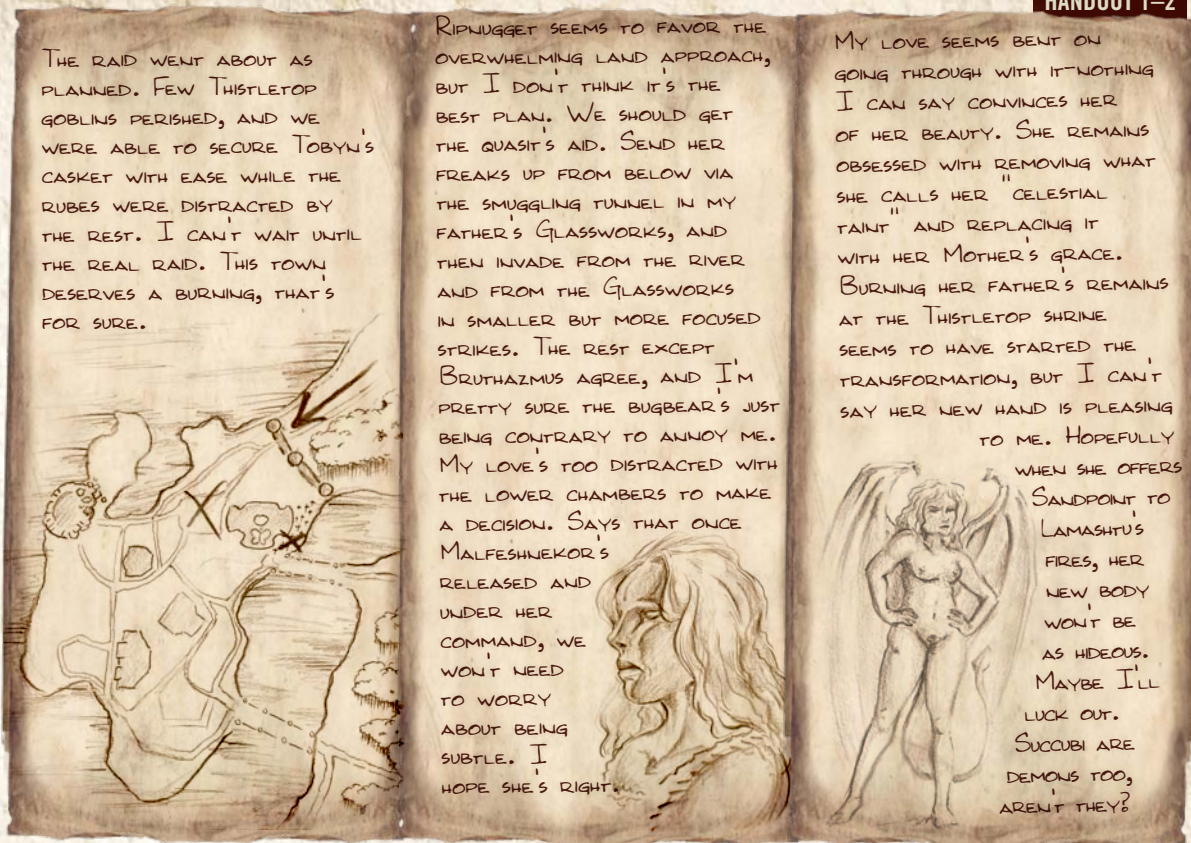 HANDOUT 1–2
The raid went about as
planned. Few Thistletop
goblins perished, and we
were able to secure Tobyn's
casket with ease while the
rubes were distracted by
the rest. I can't wait until
the real raid. This town
deserves a burning, that's
for sure.
Ripnugget seems to favor the
overwhelming land approach,
but I don't think it's the
best plan. We should get
the quasit's aid. Send her
freaks up from below via
the smuggling tunnel in my
father's Glassworks, and
then invade from the river
and from the Glassworks
in smaller but more focused
strikes. The rest except
Bruthazmus agree, and I'm
pretty sure the bugbear's just
being contrary to annoy me.
My love's too distracted with
the lower chambers to make
a decision. Says that once
Malfeshnekor's
released and
under her
command, we
won't need
to worry
about being
subtle. I
hope she's right.
My love seems bent on
going through with it—nothing
I can say convinces her
of her beauty. She remains
obsessed with removing what
she calls her "celestial
taint" and replacing it
with her Mother's grace.
Burning her father's remains
at the Thistletop shrine
seems to have started the
transformation, but I can't
say her new hand is pleasing
to me. Hopefully
when she offers
Sandpoint to
Lamashtu's
fires, her
new body
won't be
as hideous.
Maybe I'll
luck out.
Succubi are
demons too,
aren't they?